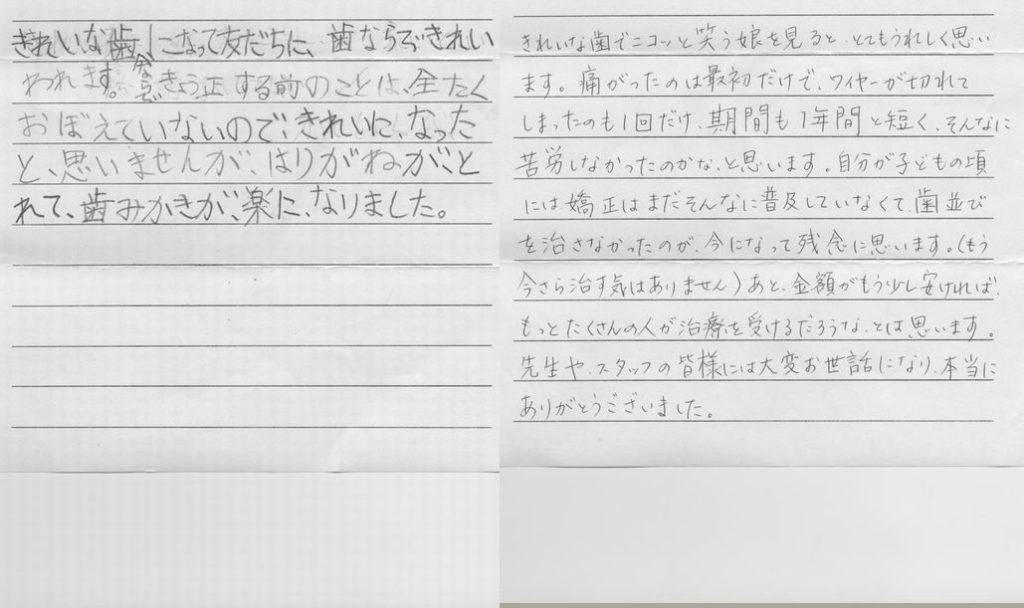 きれいな歯になって友だちに、歯ならびきれい
いわれます。きょう正する前のことは、全たく
おぼえていないので、きれいに、なった
と、思いませんが、はりがねが、と
れて、歯みかきが、楽に、なりました。
きれいな歯でニコッと笑う娘を見ると、とてもうれしく思い
ます。痛がったのは最初だけで、ワイヤーが切れて
しまったのも1回だけ、期間も1年間と短く、そんなに
苦労しなかったのかな、と思います。自分が子どもの頃
には矯正はまだそんなに普及していなくて、歯並び
を治さなかったのが、今になって残念に思います。(もう
今さら治す気はありません)あと、金額がもう少し安ければ、
もっとたくさんの人が治療を受けるだろうな、とは思います。
先生や、スタッフの皆様には大変お世話になり、本当に
ありがとうございました。